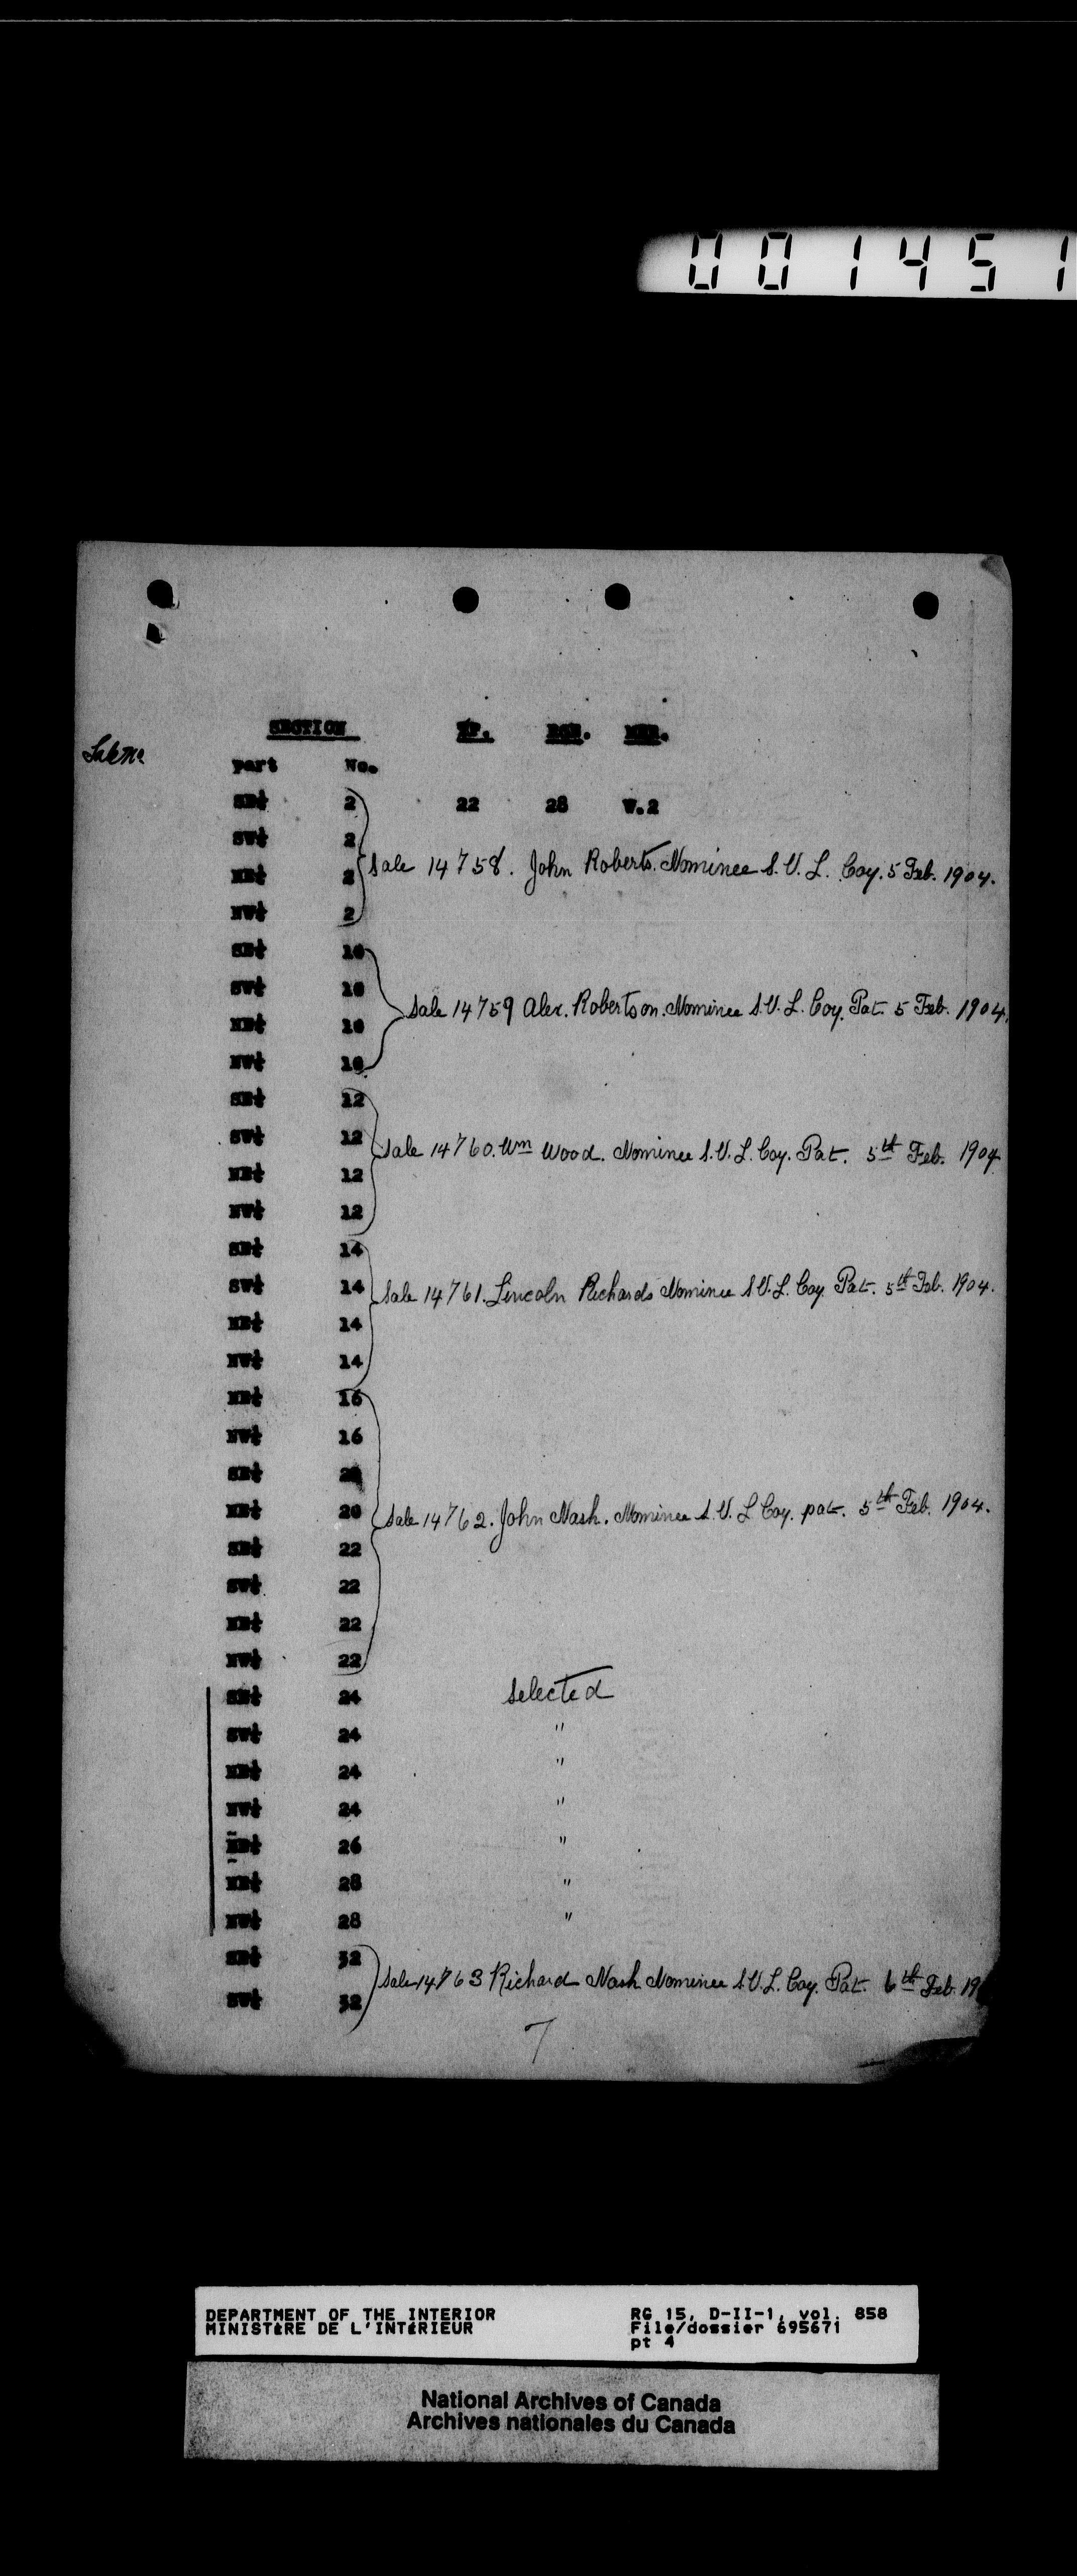 001451
SECTION TP. RGE. MER.
Sale No
part No.
SE¼ 2 22 28 W.2
SW¼ 2
NE¼ 2 Sale 14758. John Roberts. Nominee S.V.L. Coy. 5 Feb. 1904.
NW¼ 2
SE¼ 10
SW¼ 10
Sale 14759 Alex. Robertson. Nominee S.V.L. Coy. Pat. 5 Feb. 1904.
NE¼ 10
NW¼ 10
SE¼ 12
SW¼ 12
Sale 14760. Wm Wood. Nominee S.V.L. Coy. Pat. 5th Feb. 1904
NE¼ 12
NW¼ 12
SE¼ 14
SW¼ 14 Sale 14761. Lincoln Richards Nominee S.V.L. Coy Pat. 5th Feb. 1904.
NE¼ 14
NW¼ 14
NE¼ 16
NW¼ 16
SE¼ 20
NE¼ 20 Sale 14762. John Nash. Nominee S.V.L. Coy. pat. 5th Feb. 1904.
SE¼ 22
SW¼ 22
NE¼ 22
NW¼ 22
SE¼ 24 Selected
SW¼ 24 "
NE¼ 24 "
NW¼ 24 "
NE¼ 26 "
NE¼ 28 "
NW¼ 28 "
SE¼ 32
Sale 14763 Richard Nash Nominee S.V.L. Coy. Pat. 6th Feb. 19
SW¼ 32
7
DEPARTMENT OF THE INTERIOR RG 15, D-II-1, vol. 858
MINISTÈRE DE L'INTÉRIEUR File/dossier 695671
pt 4
National Archives of Canada
Archives nationales du Canada